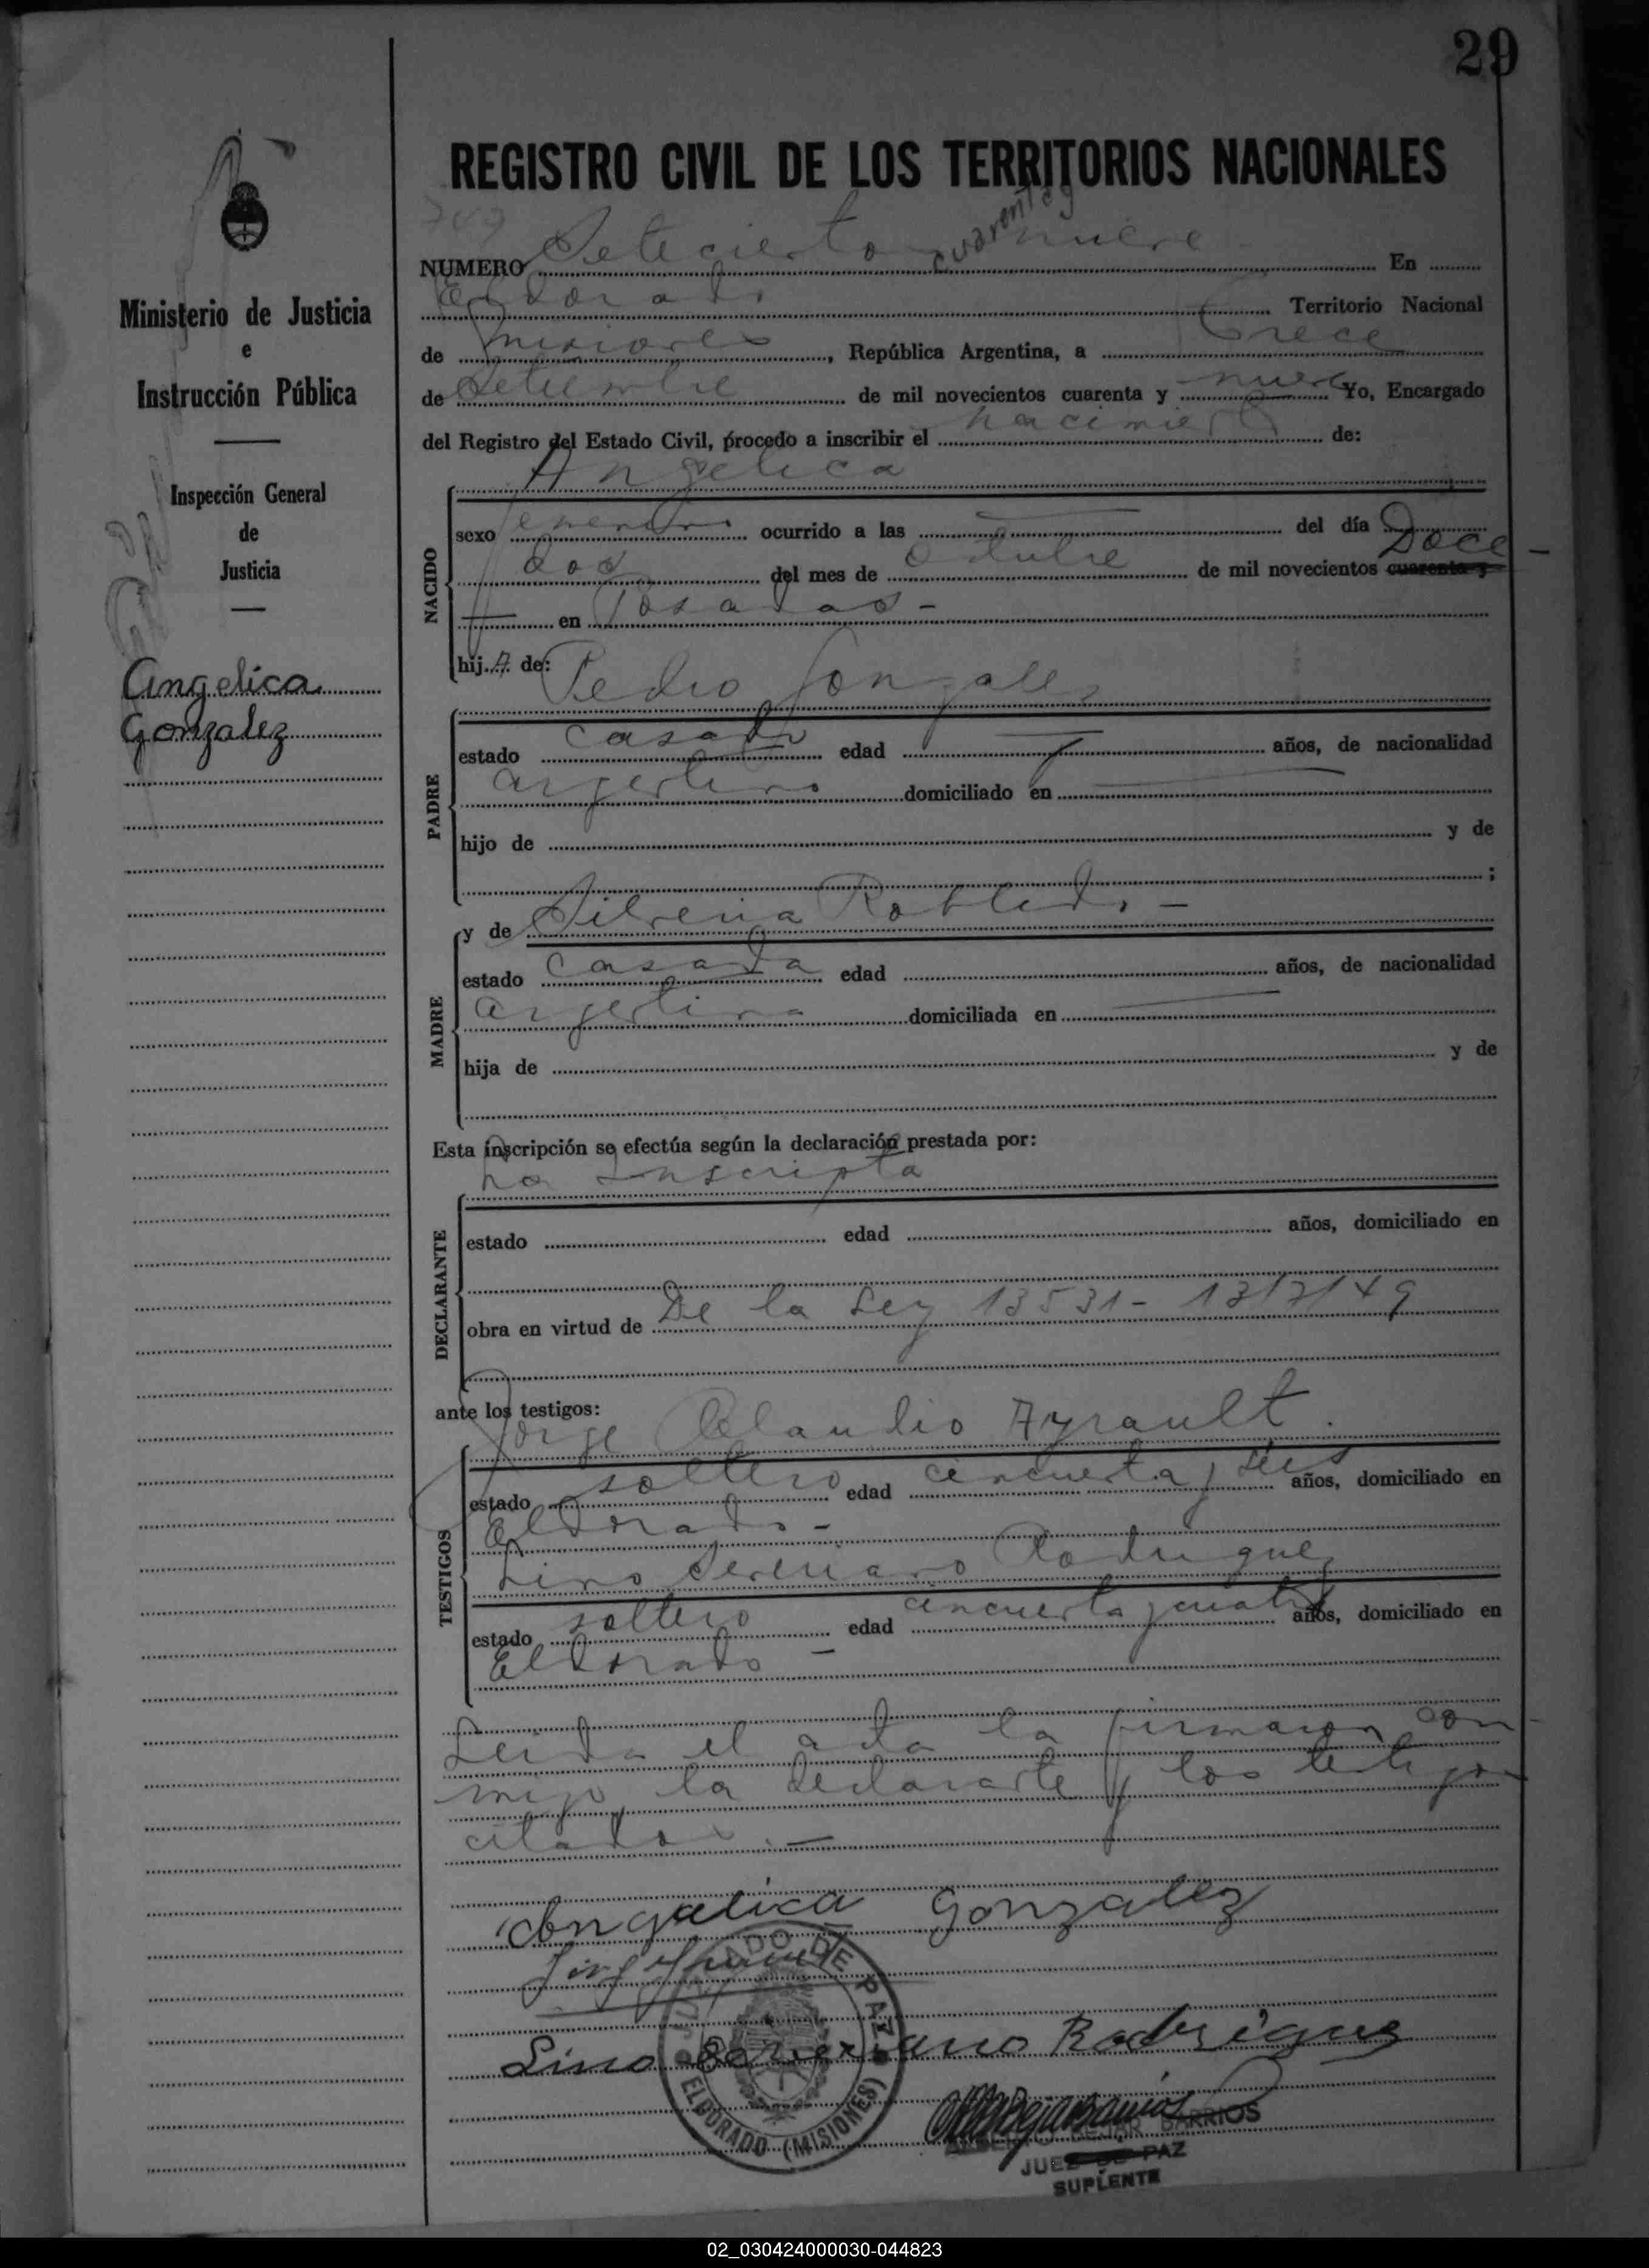 29
REGISTRO CIVIL DE LOS TERRITORIOS NACIONALES
749
cuarenta y
NUMERO Seteciento nueve En
Eldorado Territorio Nacional
de Misiones, República Argentina, a trece
de Setiembre de mil novecientos cuarenta y nueve Yo, Encargado
del Registro del Estado Civil, procedo a inscribir el nacimiento de:
Angelica
NACIDO
sexo femenino ocurrido a las del día
dos del mes de octubre de mil novecientos cuarenta y Doce -
en Posadas -
hij.a de: Pedro Gonzalez
PADRE
estado casado edad años, de nacionalidad
argentino domiciliado en
hijo de y de
;
MADRE
y de Silveria Robledo. -
estado casada edad años, de nacionalidad
argentina domiciliada en
hija de y de
Esta inscripción se efectúa según la declaración prestada por:
la inscripta
DECLARANTE
estado edad años, domiciliado en
obra en virtud de De la Ley 13531 - 13/7/49
ante los testigos:
Jorge Claudio Ayrault.
TESTIGOS
estado soltero edad cincuenta y séis años, domiciliado en
Eldorado. -
Lino Severiano Rodriguez
estado soltero edad cincuenta y cuatro años, domiciliado en
Eldorado -
Leida el acta la firmaron con
migo, la declarante y los testigos
citados. -
Angelica Gonzalez
Lino Severiano Rodriguez
JUZGADO DE PAZ
ELDORADO (MISIONES)
BEJAR BARRIOS
JUEZ DE PAZ
SUPLENTE
Ministerio de Justicia
e
Instrucción Pública
Inspección General
de
Justicia
Angelica
Gonzalez
02_030424000030-044823